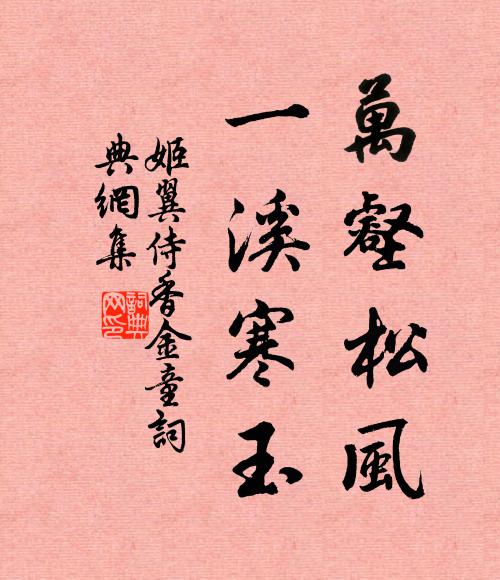 萬壑松風
一溪寒玉
姬翼侍香金童詞
典網集
詞典網印